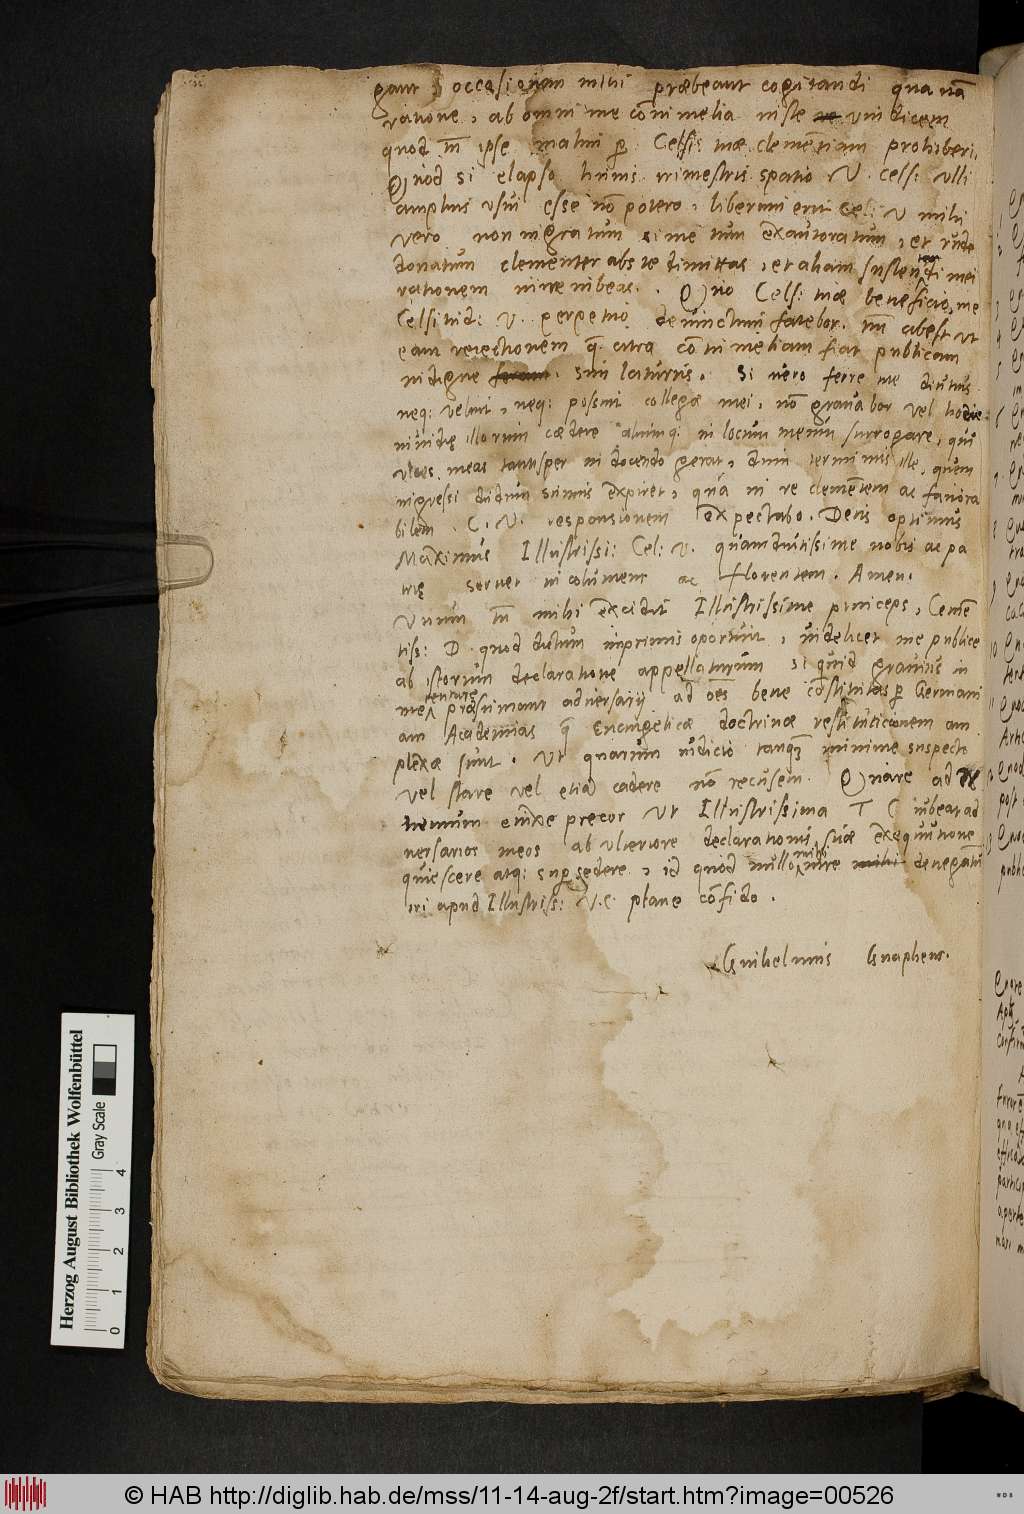 gant occasionem mihi præbeant cogitandi qua nā
ratione, ab omni me cōtumelia iuste vindicem
quod tn̄ ipse malim ꝑ Celsis: tuæ clemētiam prohiberi.
Quod si elapso huius trimestris spatio V. Cels: ulli
amplius usui esse nō potero, liberum erit Cel: V mihi
vero non ingratum si me tum exautoratum, et rude
donatum clementer abs te dimittas, et aliam sustentādi mei
rationem inire iubeas. Quo Cels: tuæ beneficio, me
Celsitud: V. perpetuo devinctum fatebor. abest ut
eam reiectionem q̄ citra cōtumeliam fiat publicam
indigne sim laturus. Si vero ferre me diutius
neq: velint, neq: possint collegæ mei, nō gravabor vel hodie
invidię illorum cædere aliumq: in locum meum surrogare, qui
vices meas tantisper in docendo gerat, dum terminus ille, quem
ingressi dudum sumus expiret, qua in re clemētem ac favora
bilem C. V. responsionem expectabo. Deus optimus
Maximus Illustrissi: Cel: V. quamdiutissime nobis ac pa
trię servet incolumem ac florentem. Amen.
Unum tn̄ mihi excidit Illustrissime princeps, Clemē
tiss: D. quod dictum imprimis oportuit, videlicet me publice
ab istorum declaratione appellaturum si quid gravius in
me præsumant adversarij ad oēs bene cōstitutas ꝑ Germani
am Academias q̄ Euangelicæ doctrinæ restitutionem am
plexæ sunt. Ut quarum iudicio tanq̄ minime suspecto
vel stare vel etiā cadere nō recusem. Quare ad
tremum enixe precor ut Illustrissima T C iubeat ad
versarios meos ab ulteriore declarationis suæ exequutione
quiescere atq: suꝑsedere, id quod nullo mihi iure denegatū
iri apud Illustriss: V. C. plane cōfido.
Guihelmus Gnapheus.
Herzog August Bibliothek Wolfenbüttel
Gray Scale
0 1 2 3 4
© HAB http://diglib.hab.de/mss/11-14-aug-2f/start.htm?image=00526